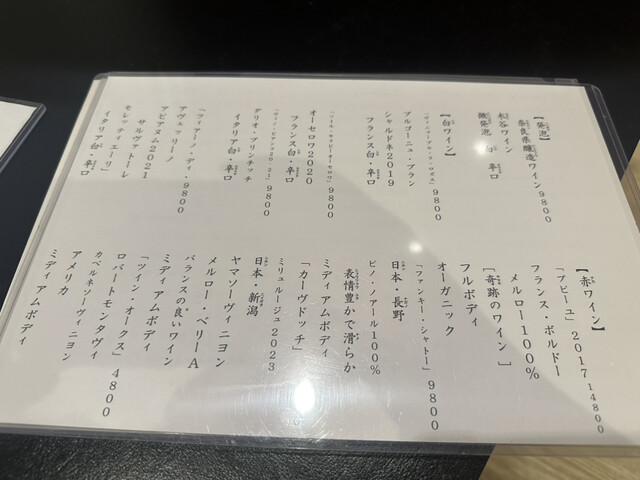 【発泡】
奈良県醸造ワイン9800
木谷ワイン
微発泡 白 辛口
【白ワイン】
アルゴーニュ・ブラン
シャルドネ2019
フランス白・辛口
オーセロワ2020
フランス白・辛口
グリオ・プリンチッチ
イタリア白・辛口
「フィアーノ・ディ・9800
アヴェッリーノ
アピアヌム2021
サルヴァトーレ
モレッティエーリ」
イタリア白・辛口
【赤ワイン】
「アビーユ」2017 14800
フランス・ボルドー
メルロー100%
［奇跡のワイン］
フルボディ
オーガニック
「ファンキー・シャトー」9800
日本・長野
ピノ・ノアール100%
表情豊かで滑らか
ミディアムボディ
「カーヴドッチ」
ミリュルージュ2023
日本・新潟
ヤマソーヴィニヨン
メルロー・ベリーA
バランスの良いワイン
ミディアムボディ
「ツイン・オークス」4800
ロバートモンダヴィ
カベルネソーヴィニヨン
アメリカ
ミディアムボディ